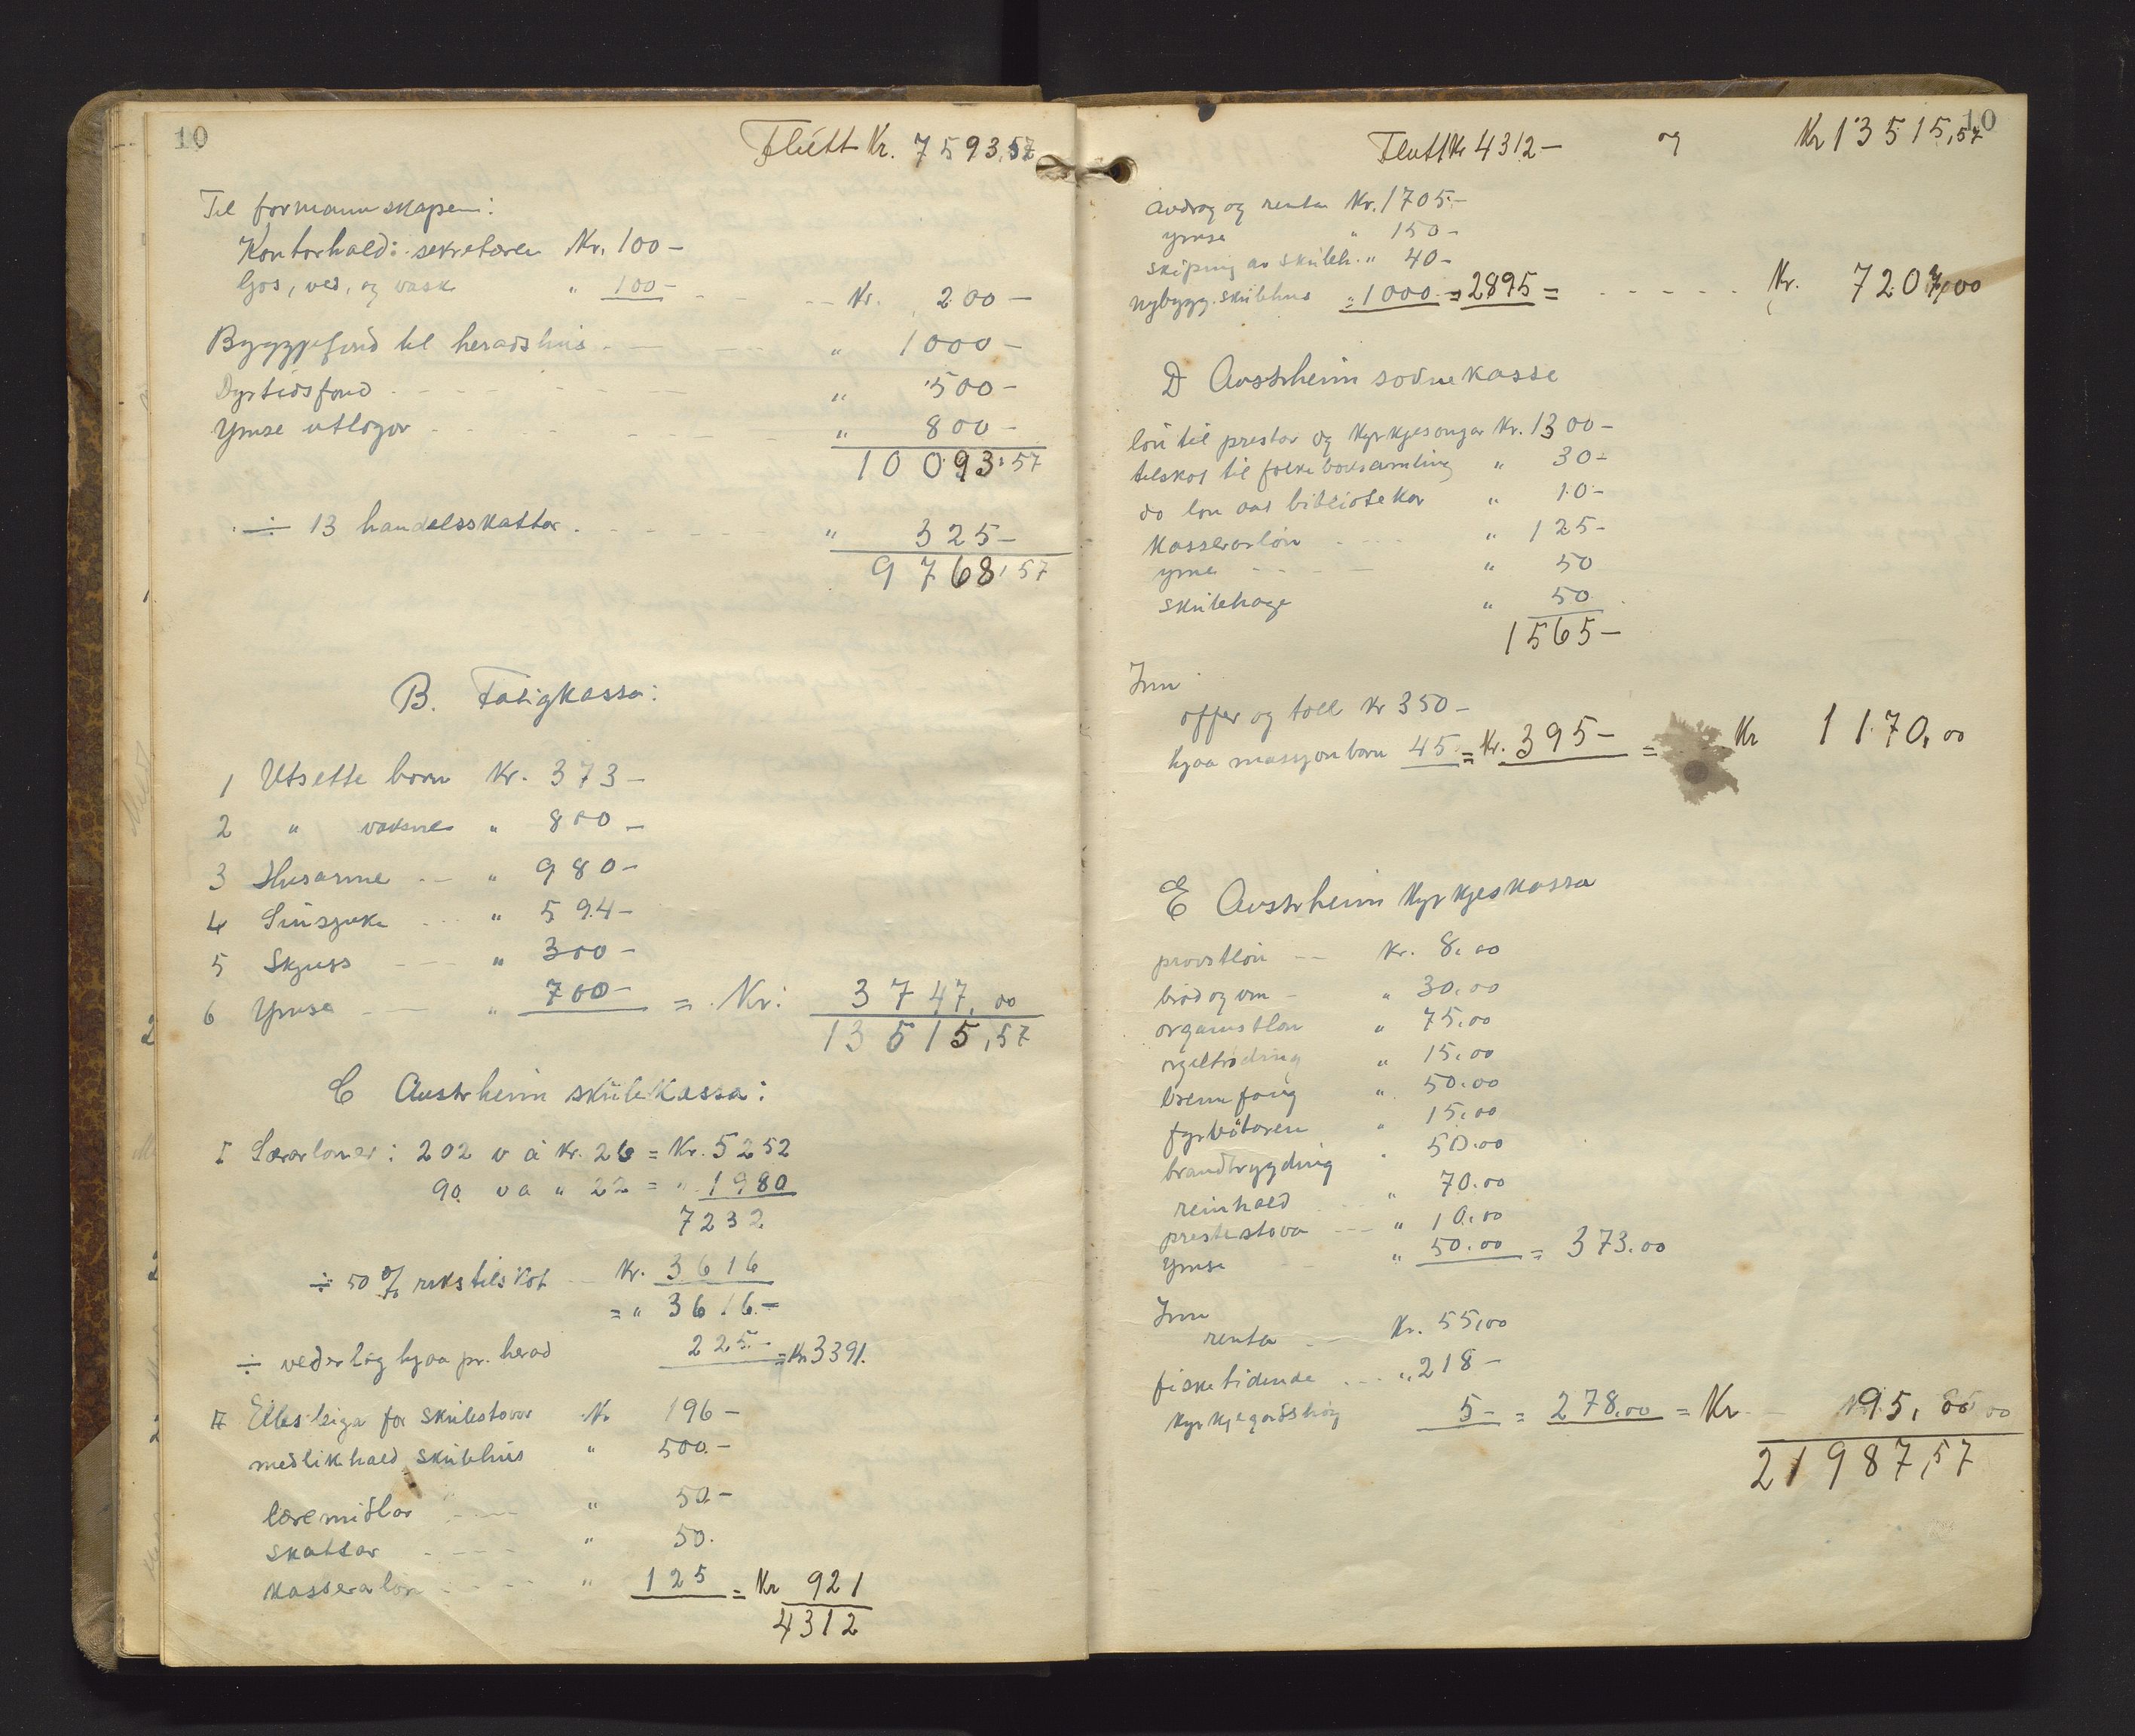 10
Flütt Kr. 7593,57
Til formannskapen:
Kontorhald: sekretæren Kr. 100 –
ljos, ved, og vask " 100 – – – Kr. 200 –
Byggjefond til heradshus – – " 1000 –
Dyrtidsfond – – – " 500 –
Ymse utlogor – – – " 800 –
10093,57
÷ 13 handelsskattar. – – – " 325 –
9768,57
B. Fatigkassa:
1 Utsette born Kr. 373 –
2 " vaksne " 800 –
3 Husarme – " 980 –
4 Sinsjuke – " 594 –
5 Skjuss – " 300 –
6 Ymse – " 700 – = Kr. 3747,00
13515,57
C Austrheim skülekassa:
I Lærarløner: 202 v à kr. 26 = Kr. 5252
90 v a " 22 = " 1980
7232
÷ 50 % rikstilskot – Kr. 3616
= " 3616 –
÷ vederlag hjaa pr. herad 225. – = Kr 3391.
II Elles leiga for skülestovor Kr 196 –
medlikehald skülehüs " 500 –
læremidlar – " 50 –
skattar – " 50.
kasseralön – " 125 = Kr 921
4312
10
Flutt Kr 4312 – og Kr 13515,57
avdrag og renta Kr. 1705. –
ymse " 150 –
skiping av skuleh. " 40 –
nybygg. skülehus " 1000 – = 2895 = – – – Kr. 7207,00
D Austrheim sodnekasse
lön til prestar og kyrkjesongar Kr. 1300 –
tilskot til folkeboksamling " 30 –
do lön aat bibliotekar " 10 –
kasserarlön – " 125 –
ymse – – – " 50
skülehage " 50
1565 –
Inn
offer og toll Kr 350 –
hjaa massjon born 45 = Kr. 395 – = Kr 1170,00
E Austrheim kyrkjekassa
provstlön – Kr. 8,00
bröd og vin – " 30,00
organistlön " 75,00
orgeltröding " 15,00
brennfang " 50,00
fyrbötaren " 15,00
brandtrygding " 50,00
reinhald " 70,00
prestestova – " 10,00
Ymse " 50,00 = 373,00
Inn
renta – Kr. 55,00
fisketidende – " 218 –
kyrkjegardshøy 5 – = 278,00 = Kr 95,00
21987,57